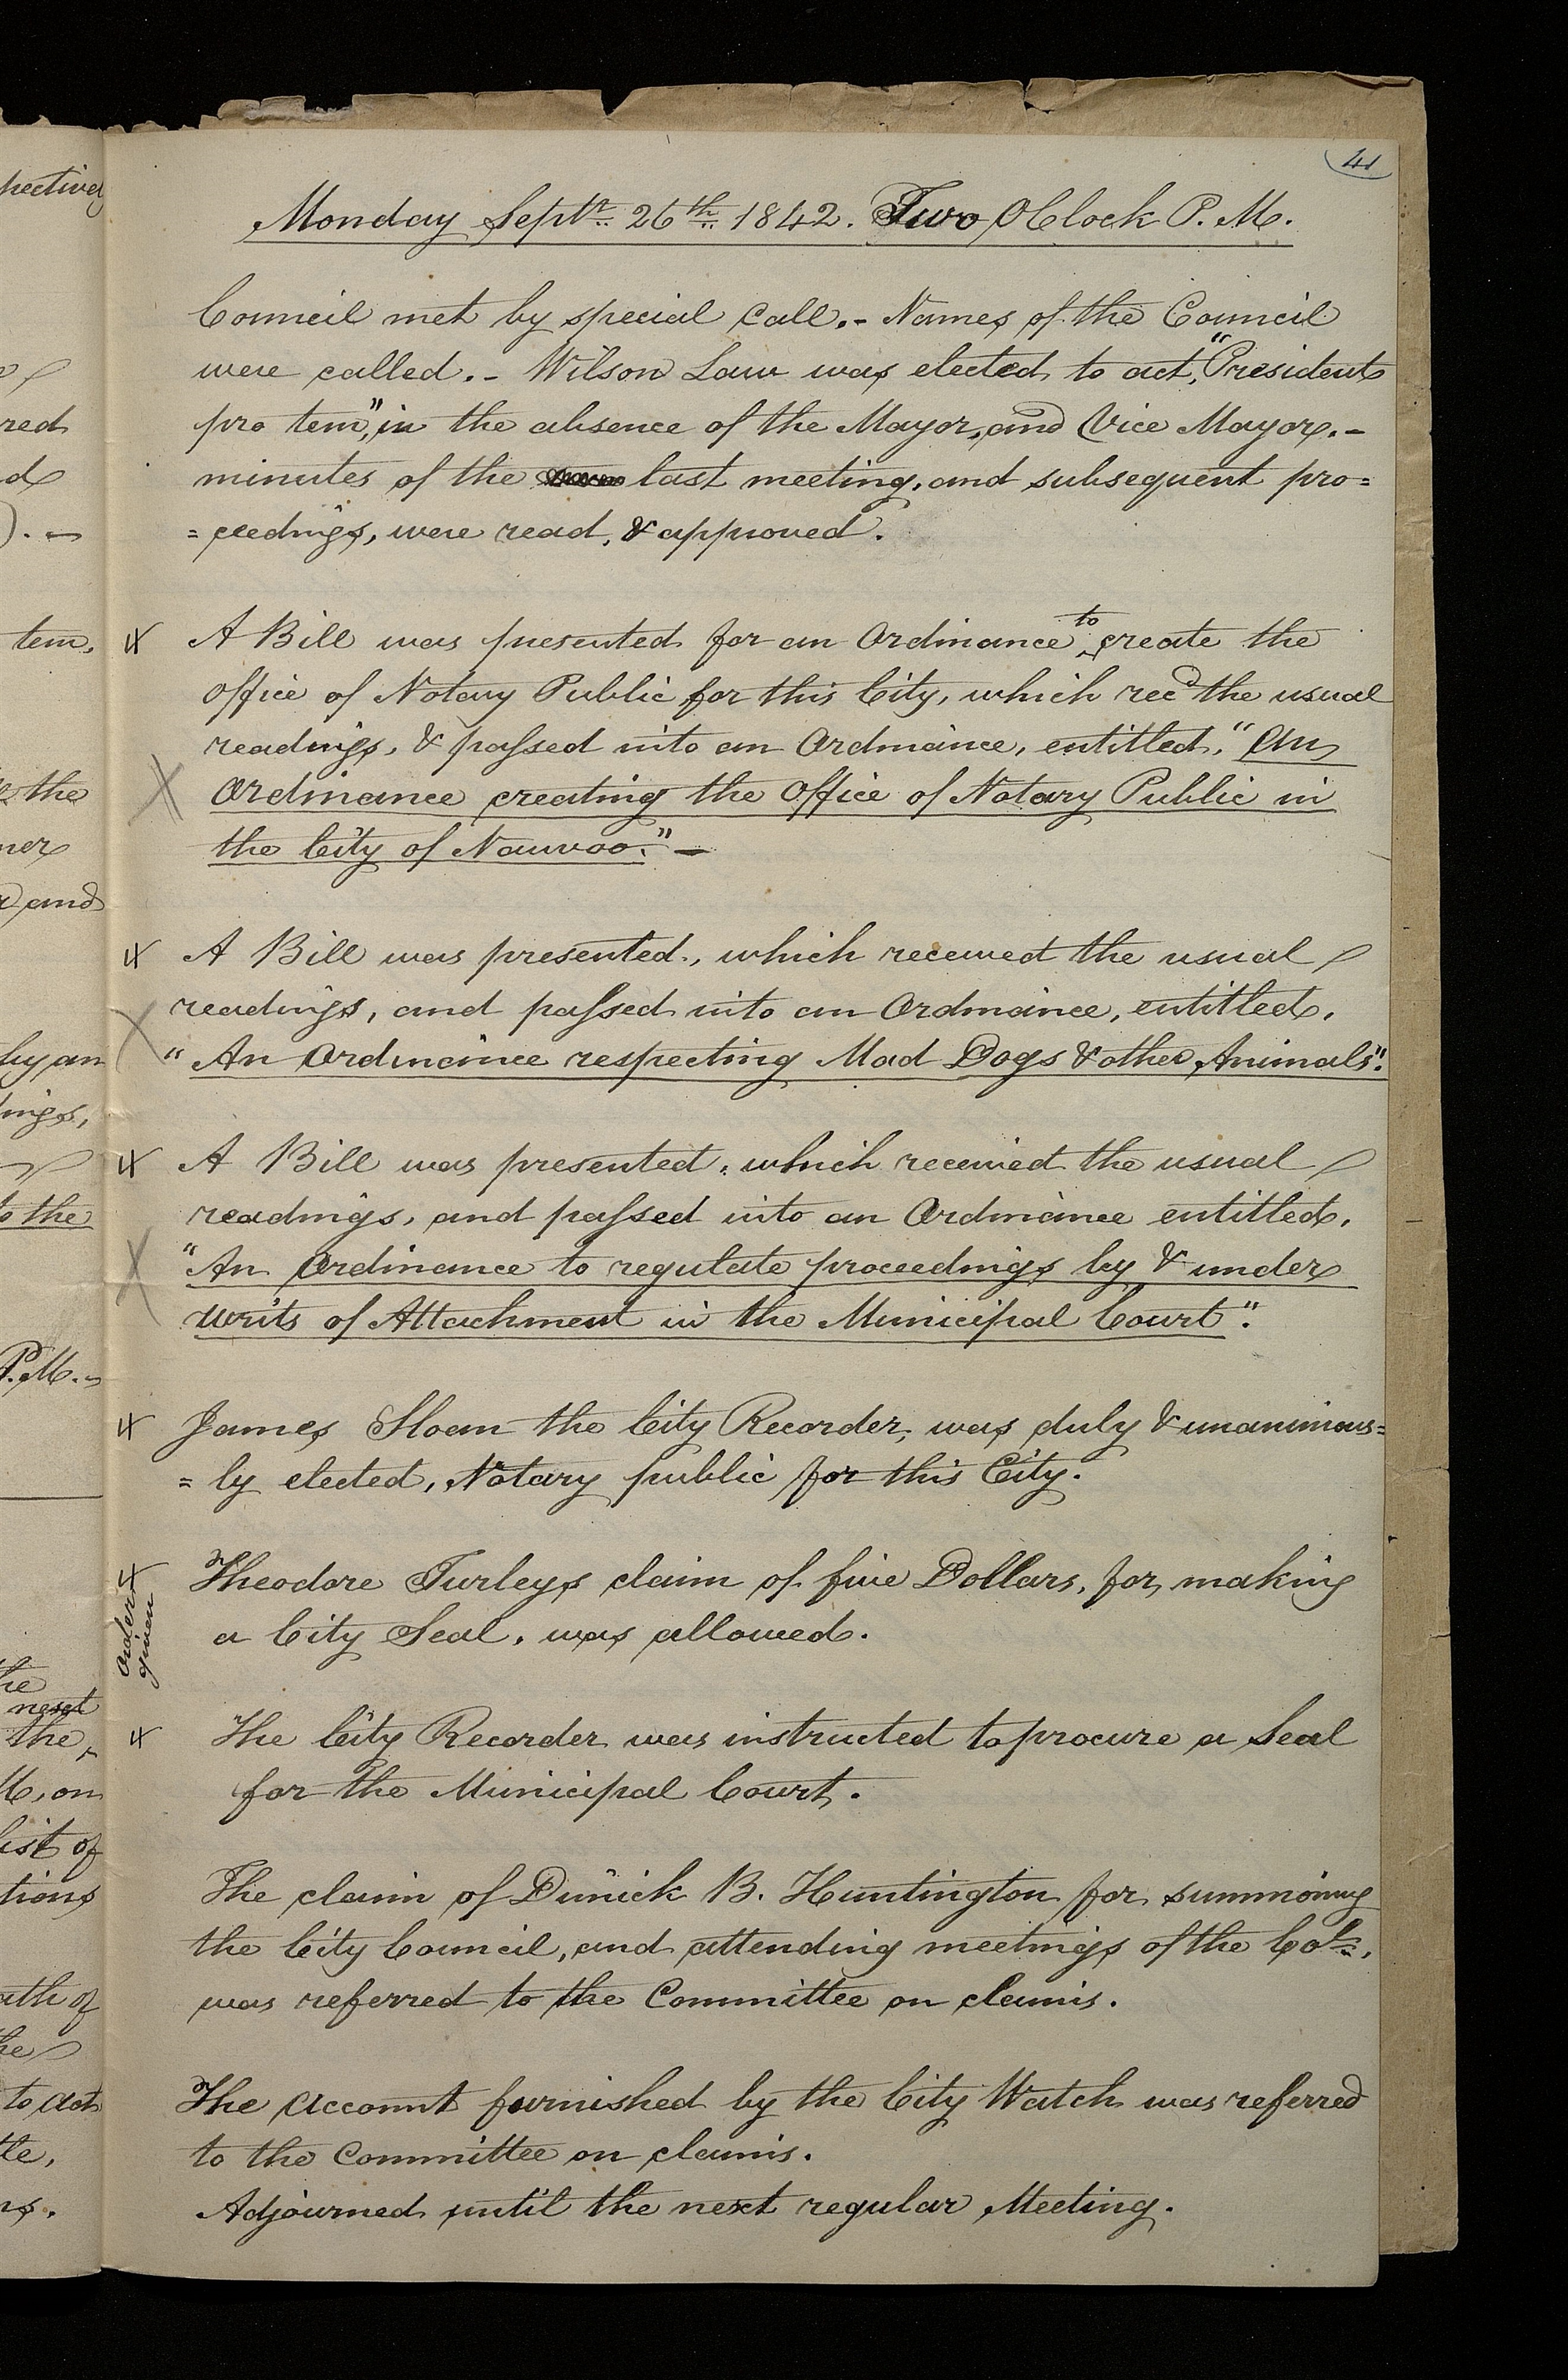 41
Monday Septr. 26th 1842. Two OClock P. M.
Council met by special Call.- Names of the Council
were called.- Wilson Law was elected to act, "President
pro tem", in the absence of the Mayor, and Vice Mayor.-
minutes of the last meeting, and subsequent pro=
=ceedings, were read, & approved.
A Bill was presented for an Ordinance to create the
office of Notary Public for this City, which recd the usual
readings, & passed into an Ordinance, entitled, "An
Ordinance creating the Office of Notary Public in
the City of Nauvoo."-
A Bill was presented, which received the usual
readings, and passed into an Ordinance, entitled,
"An Ordinance respecting Mad Dogs & other Animals".
A Bill was presented, which received the usual
readings, and passed into an Ordinance entitled,
"An Ordinance to regulate proceedings by & under
writs of Attachment in the Municipal Court".
James Sloan the City Recorder, was duly & unanimous=
=ly elected, Notary public for this City.
Order given
Theodore Turleys claim of five Dollars, for making
a City Seal, was allowed.
The City Recorder was instructed to procure a Seal
for the Municipal Court.
The claim of Dimick B. Huntington for summoning
the City Council, and attending meetings of the Col.,
was referred to the Committee on claims.
The Account furnished by the City Watch was referred
to the Committee on claims.
Adjourned until the next regular Meeting.